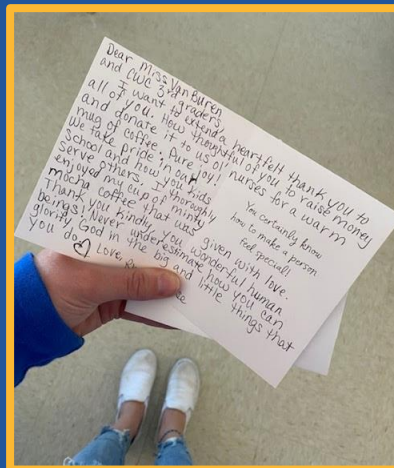 Dear Mrs. Van Buren
and CWC 3rd graders,
I want to extend a heartfelt thank you to
all of you. How thoughtful of you to raise money
and donate it to us ol' nurses for a warm
mug of coffee. Pure joy!
We take pride in our
school and how you kids
serve others. I thoroughly
enjoyed my cup of minty
mocha coffee that was given with love.
Thank you kindly, you wonderful human
beings! Never underestimate how you can
glorify God in the big and little things that
you do ♡ Love,
You certainly know
how to make a person
feel special!